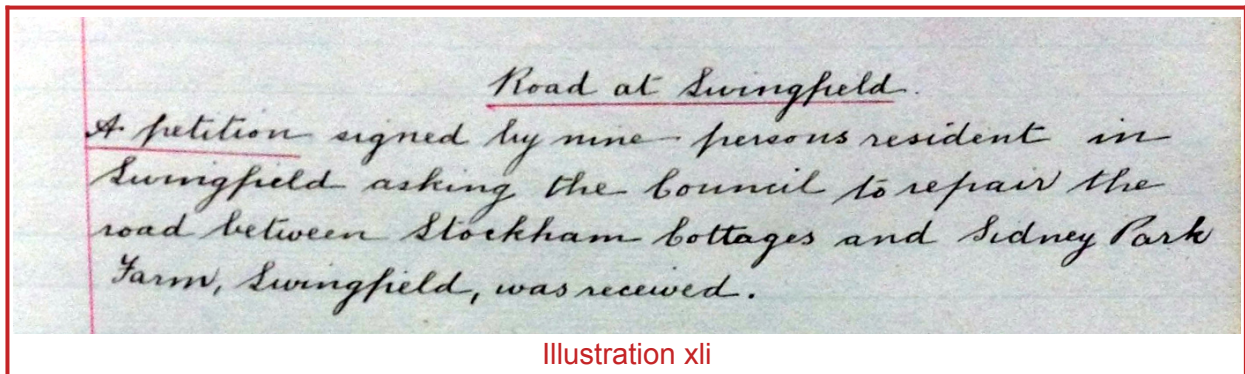 Road at Swingfield.
A petition signed by nine persons resident in
Swingfield asking the Council to repair the
road between Stockham Cottages and Sidney Park
Farm, Swingfield, was received.
Illustration xli